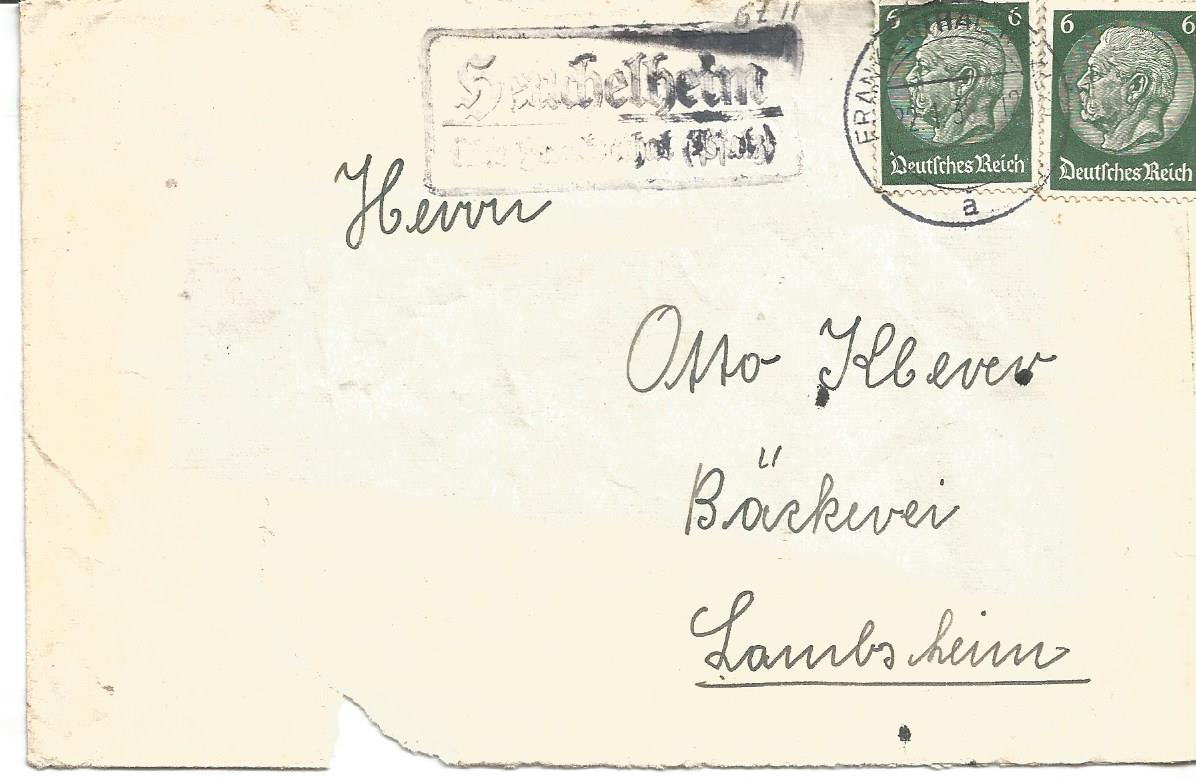 Heuchelheim
(Pfalz)
FRAN
a
6 6
Deutsches Reich
6 6
Deutsches Reich
Herrn
Otto
Bäckerei
Lambsheim